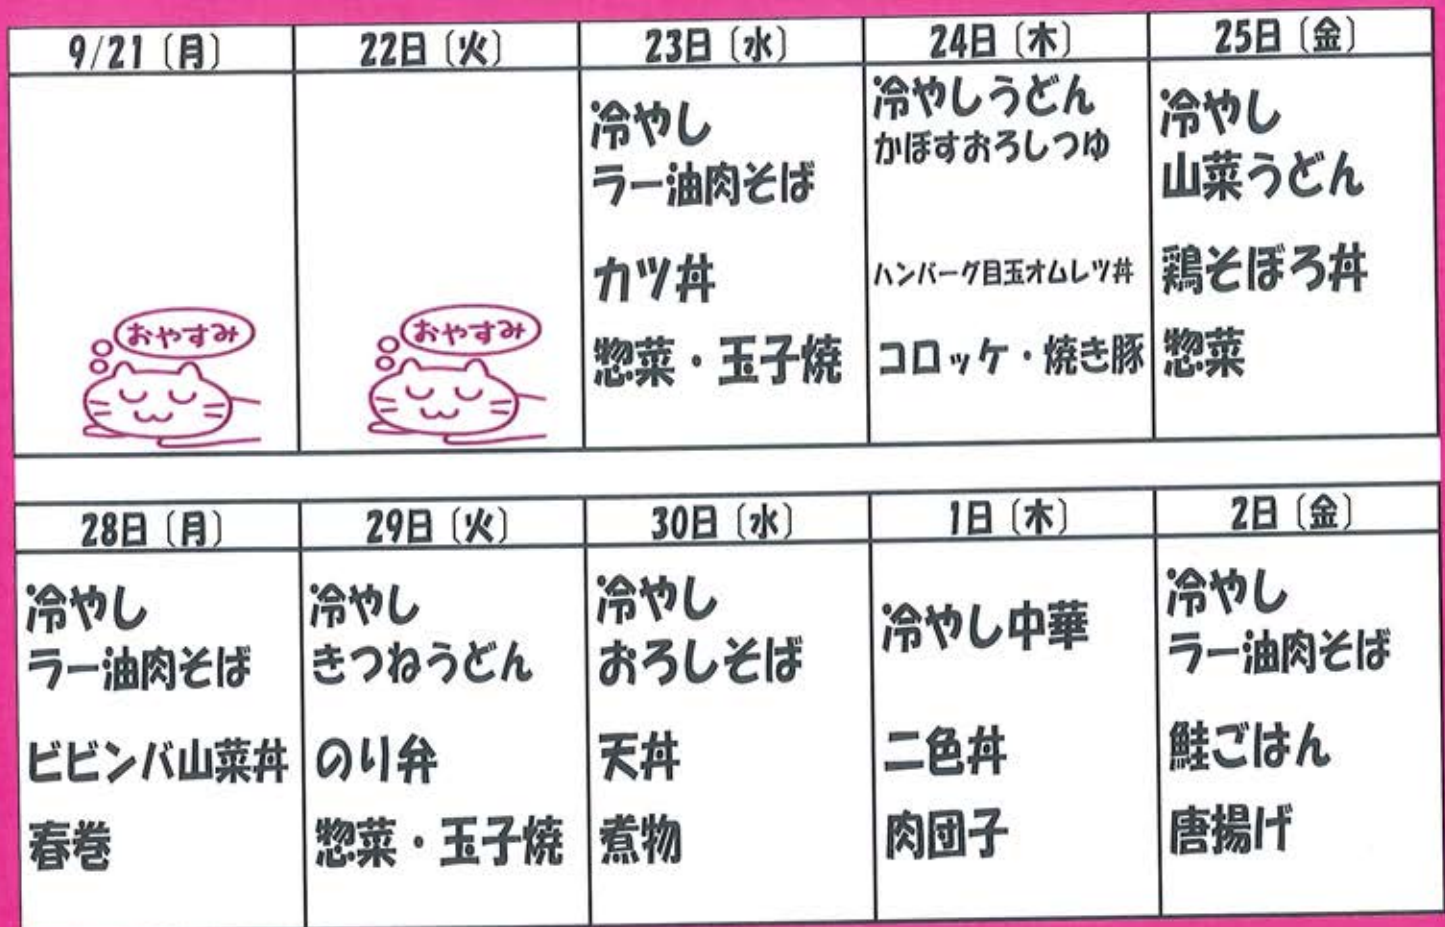 9/21〔月〕
22日〔火〕
23日〔水〕
24日〔木〕
25日〔金〕
おやすみ
おやすみ
冷やし
ラー油肉そば
カツ丼
惣菜・玉子焼
冷やしうどん
かぼすおろしつゆ
ハンバーグ目玉オムレツ丼
コロッケ・焼き豚
冷やし
山菜うどん
鶏そぼろ丼
惣菜
28日〔月〕
29日〔火〕
30日〔水〕
1日〔木〕
2日〔金〕
冷やし
ラー油肉そば
ビビンバ山菜丼
春巻
冷やし
きつねうどん
のり弁
惣菜・玉子焼
冷やし
おろしそば
天丼
煮物
冷やし中華
二色丼
肉団子
冷やし
ラー油肉そば
鮭ごはん
唐揚げ